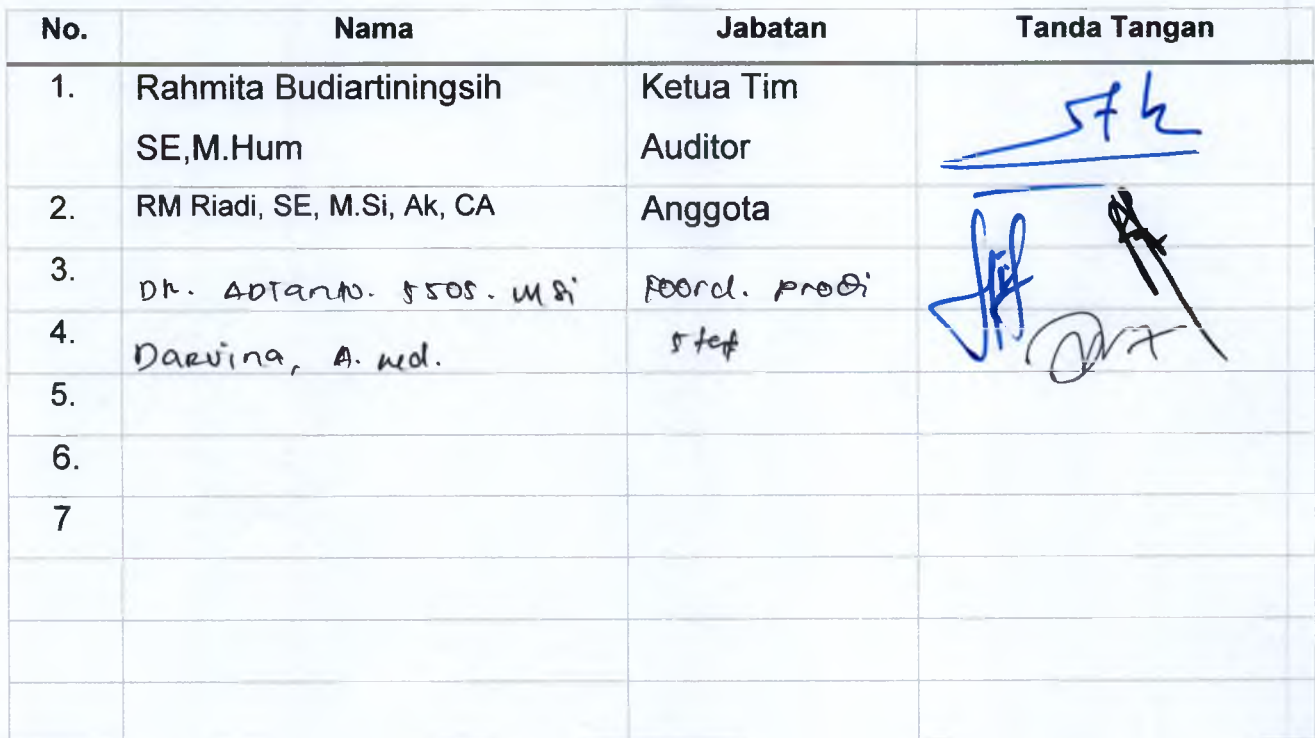 No. Nama Jabatan Tanda Tangan
1. Rahmita Budiartiningsih Ketua Tim
SE,M.Hum Auditor
2. RM Riadi, SE, M.Si, Ak, CA Anggota
3. Dr. Adianto. SSos. MSi Koord. prodi
4. Darvina, A. md. staf
5.
6.
7